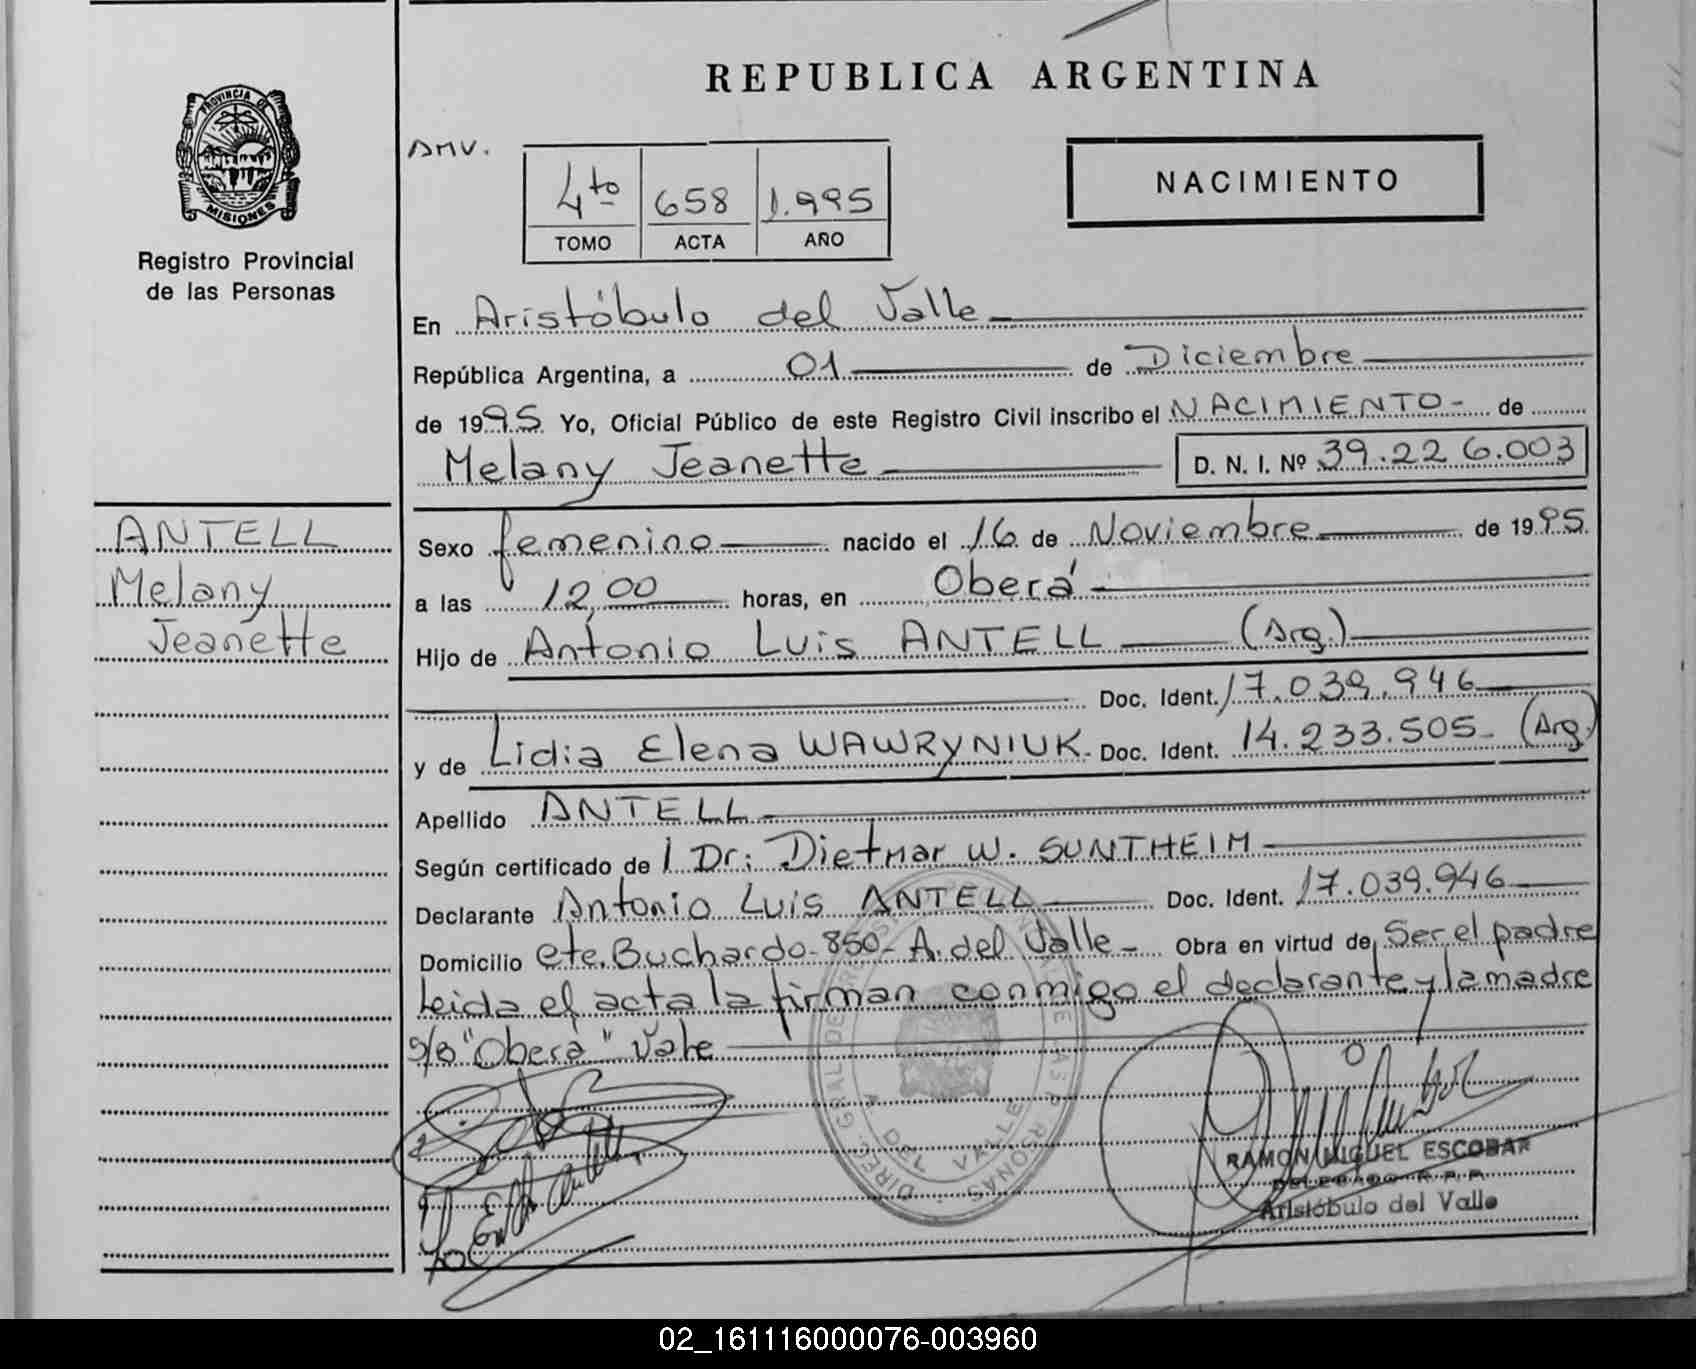 REPUBLICA ARGENTINA
PROVINCIA DE
MISIONES
Registro Provincial
de las Personas
AMV.
4to 658 1.995
TOMO ACTA AÑO
NACIMIENTO
En Aristóbulo del Valle
República Argentina, a 01 de Diciembre
de 1995 Yo, Oficial Público de este Registro Civil inscribo el NACIMIENTO- de
Melany Jeanette D. N. I. Nº 39.226.003
ANTELL
Melany
Jeanette
Sexo femenino nacido el 16 de Noviembre de 1995.
a las 12,00 horas, en Oberá
Hijo de Antonio Luis ANTELL (Arg.)
Doc. Ident. 17.039.946
y de Lidia Elena WAWRYNIUK. Doc. Ident. 14.233.505- (Arg.)
Apellido ANTELL
Según certificado de Dr: Dietmar W. SUNTHEIM
Declarante Antonio Luis ANTELL Doc. Ident. 17.039.946
Domicilio cte. Buchardo-850- A. del Valle- Obra en virtud de Ser el padre
Leida el acta la firman conmigo el declarante y la madre
s/b "Oberá" Vale
RAMON MIGUEL ESCOBAR
Aristóbulo del Valle
02_161116000076-003960